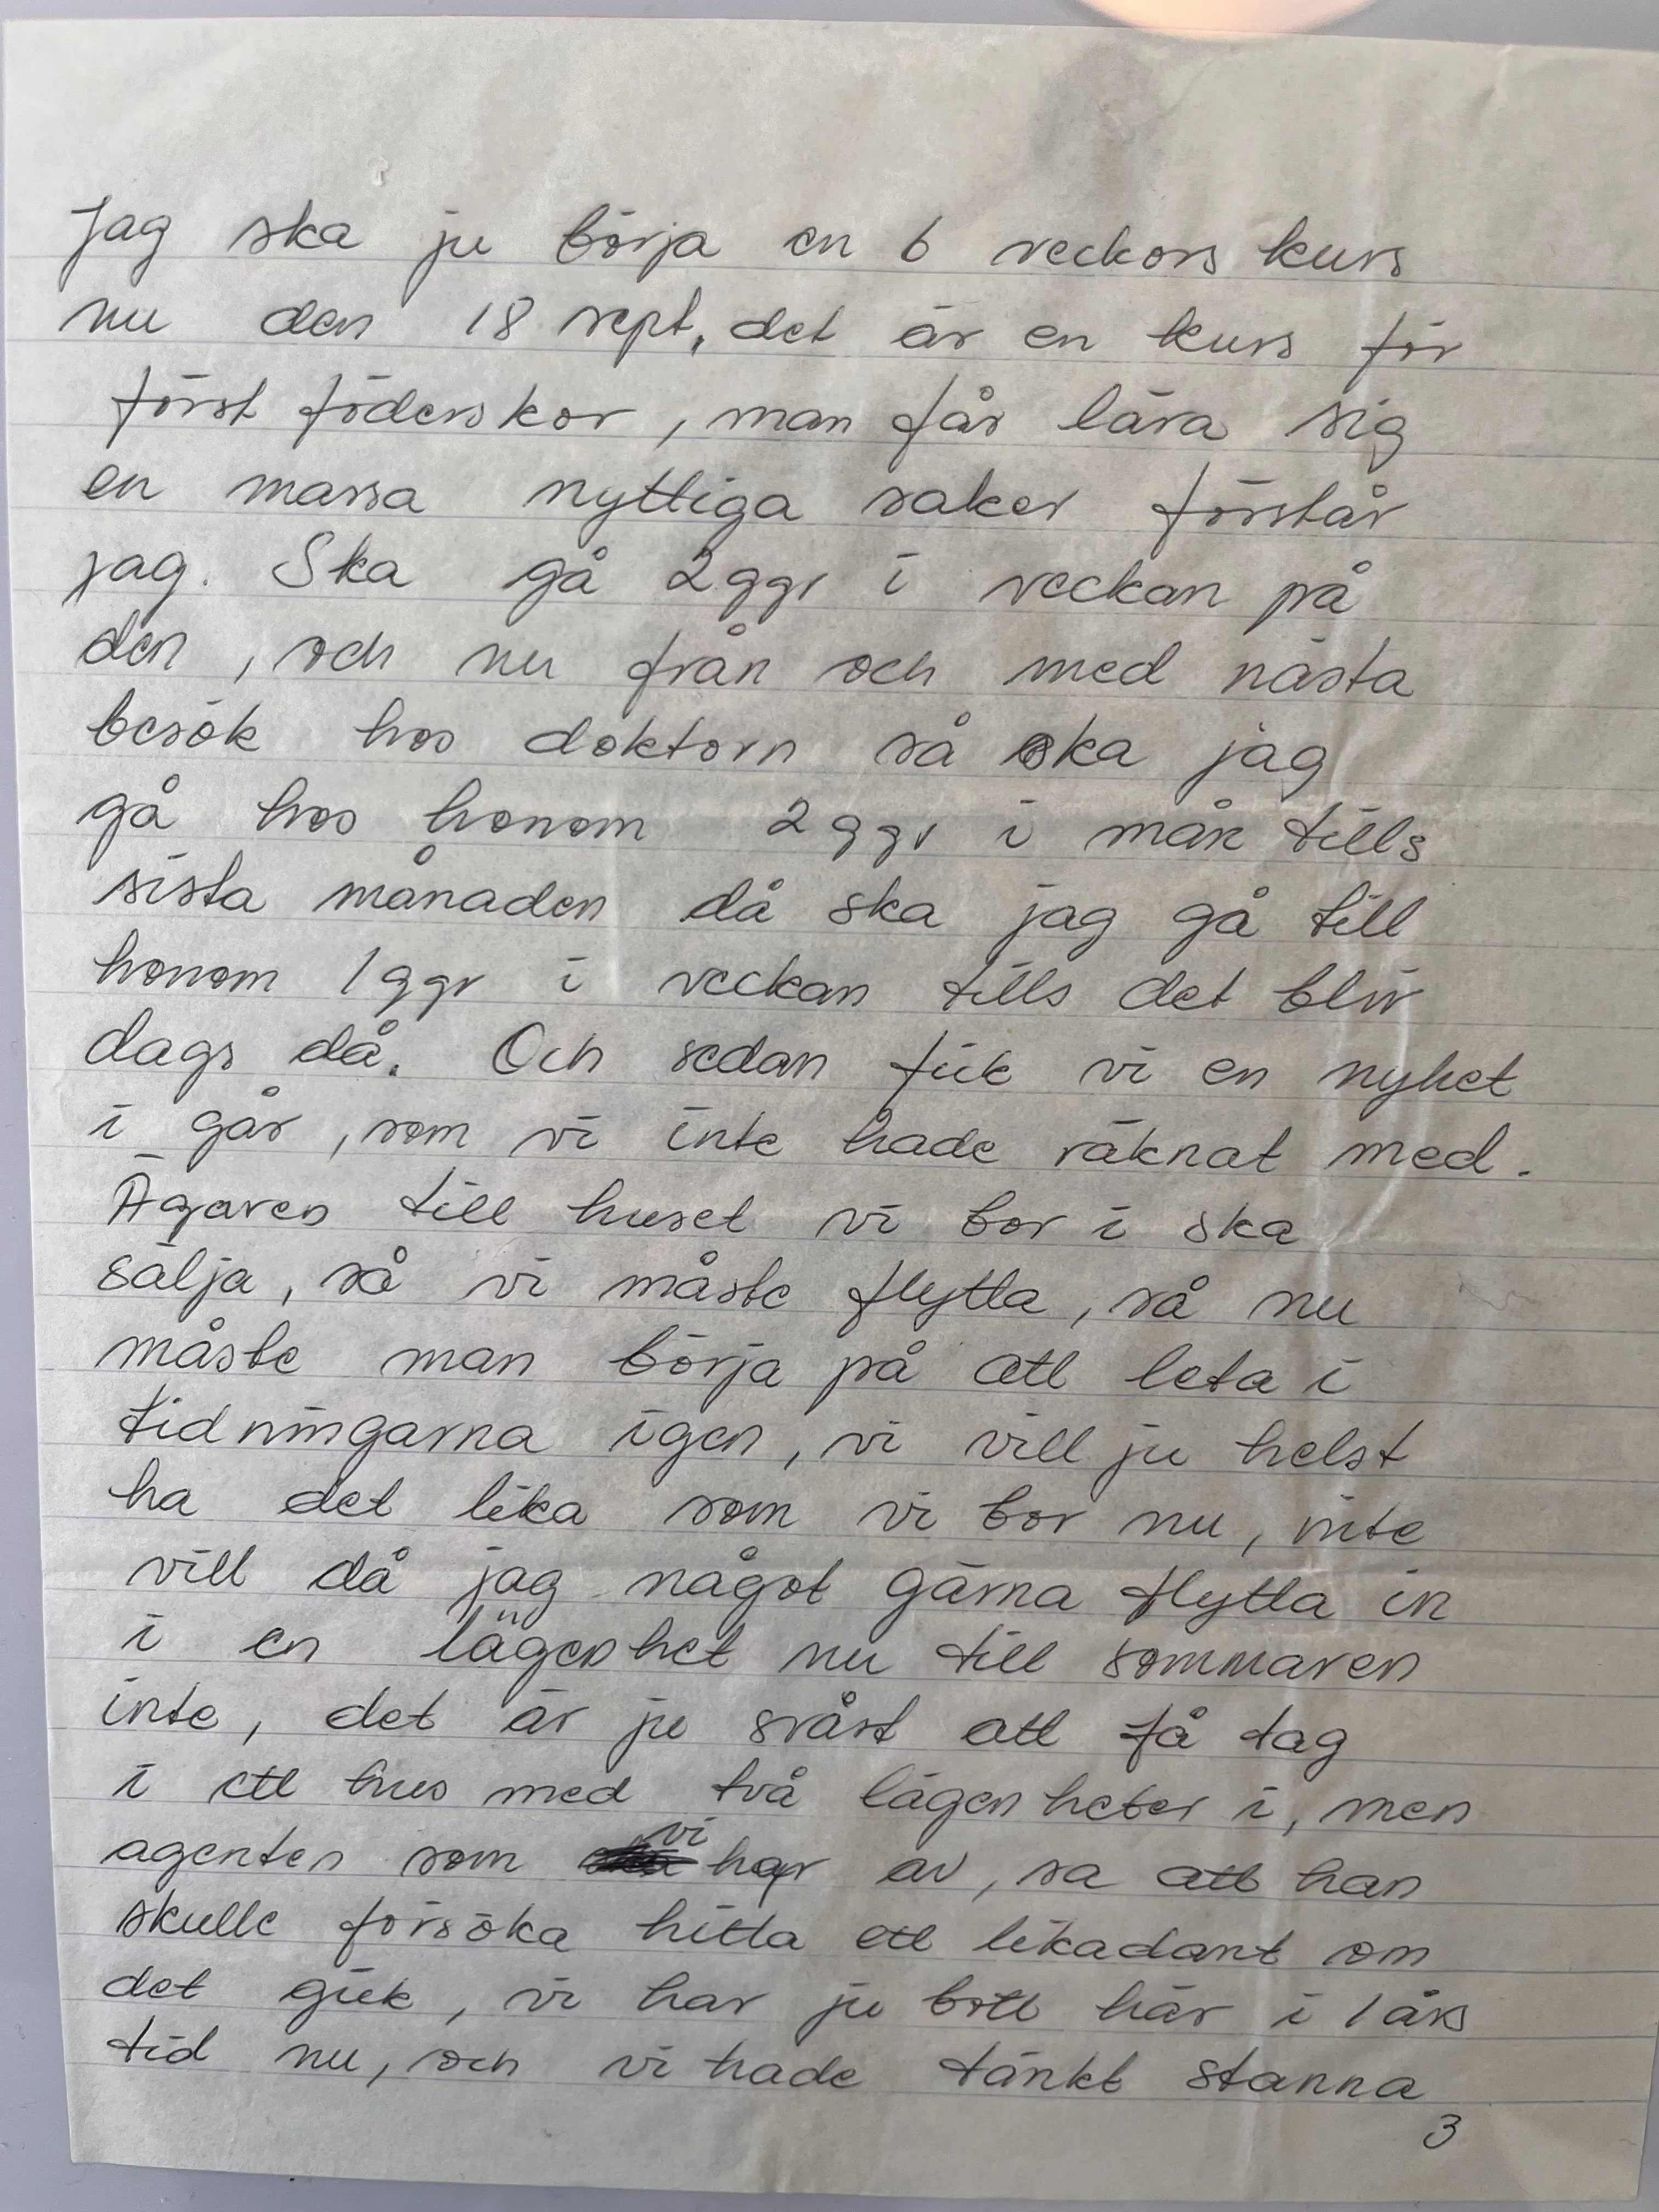 Jag ska ju börja en 6 veckors kurs
nu den 18 sept, det är en kurs för
först föderskor, man får lära sig
en massa nyttiga saker förstår
jag. Ska gå 2ggr i veckan på
den, och nu från och med nästa
besök hos doktorn så ska jag
gå hos honom 2ggr i mån tills
sista månaden då ska jag gå till
honom 1ggr i veckan tills det blir
dags då. Och sedan fick vi en nyhet
i går, som vi inte hade räknat med.
Ägaren till huset vi bor i ska
sälja, så vi måste flytta, så nu
måste man börja på att leta i
tidningarna igen, vi vill ju helst
ha det lika som vi bor nu, inte
vill då jag något gärna flytta in
i en lägenhet nu till sommaren
inte, det är ju svårt att få tag
i ett hus med två lägenheter i, men
agenten som vi har av, sa att han
skulle försöka hitta ett likadant om
det gick, vi har ju bott här i 1 års
tid nu, och vi hade tänkt stanna
3